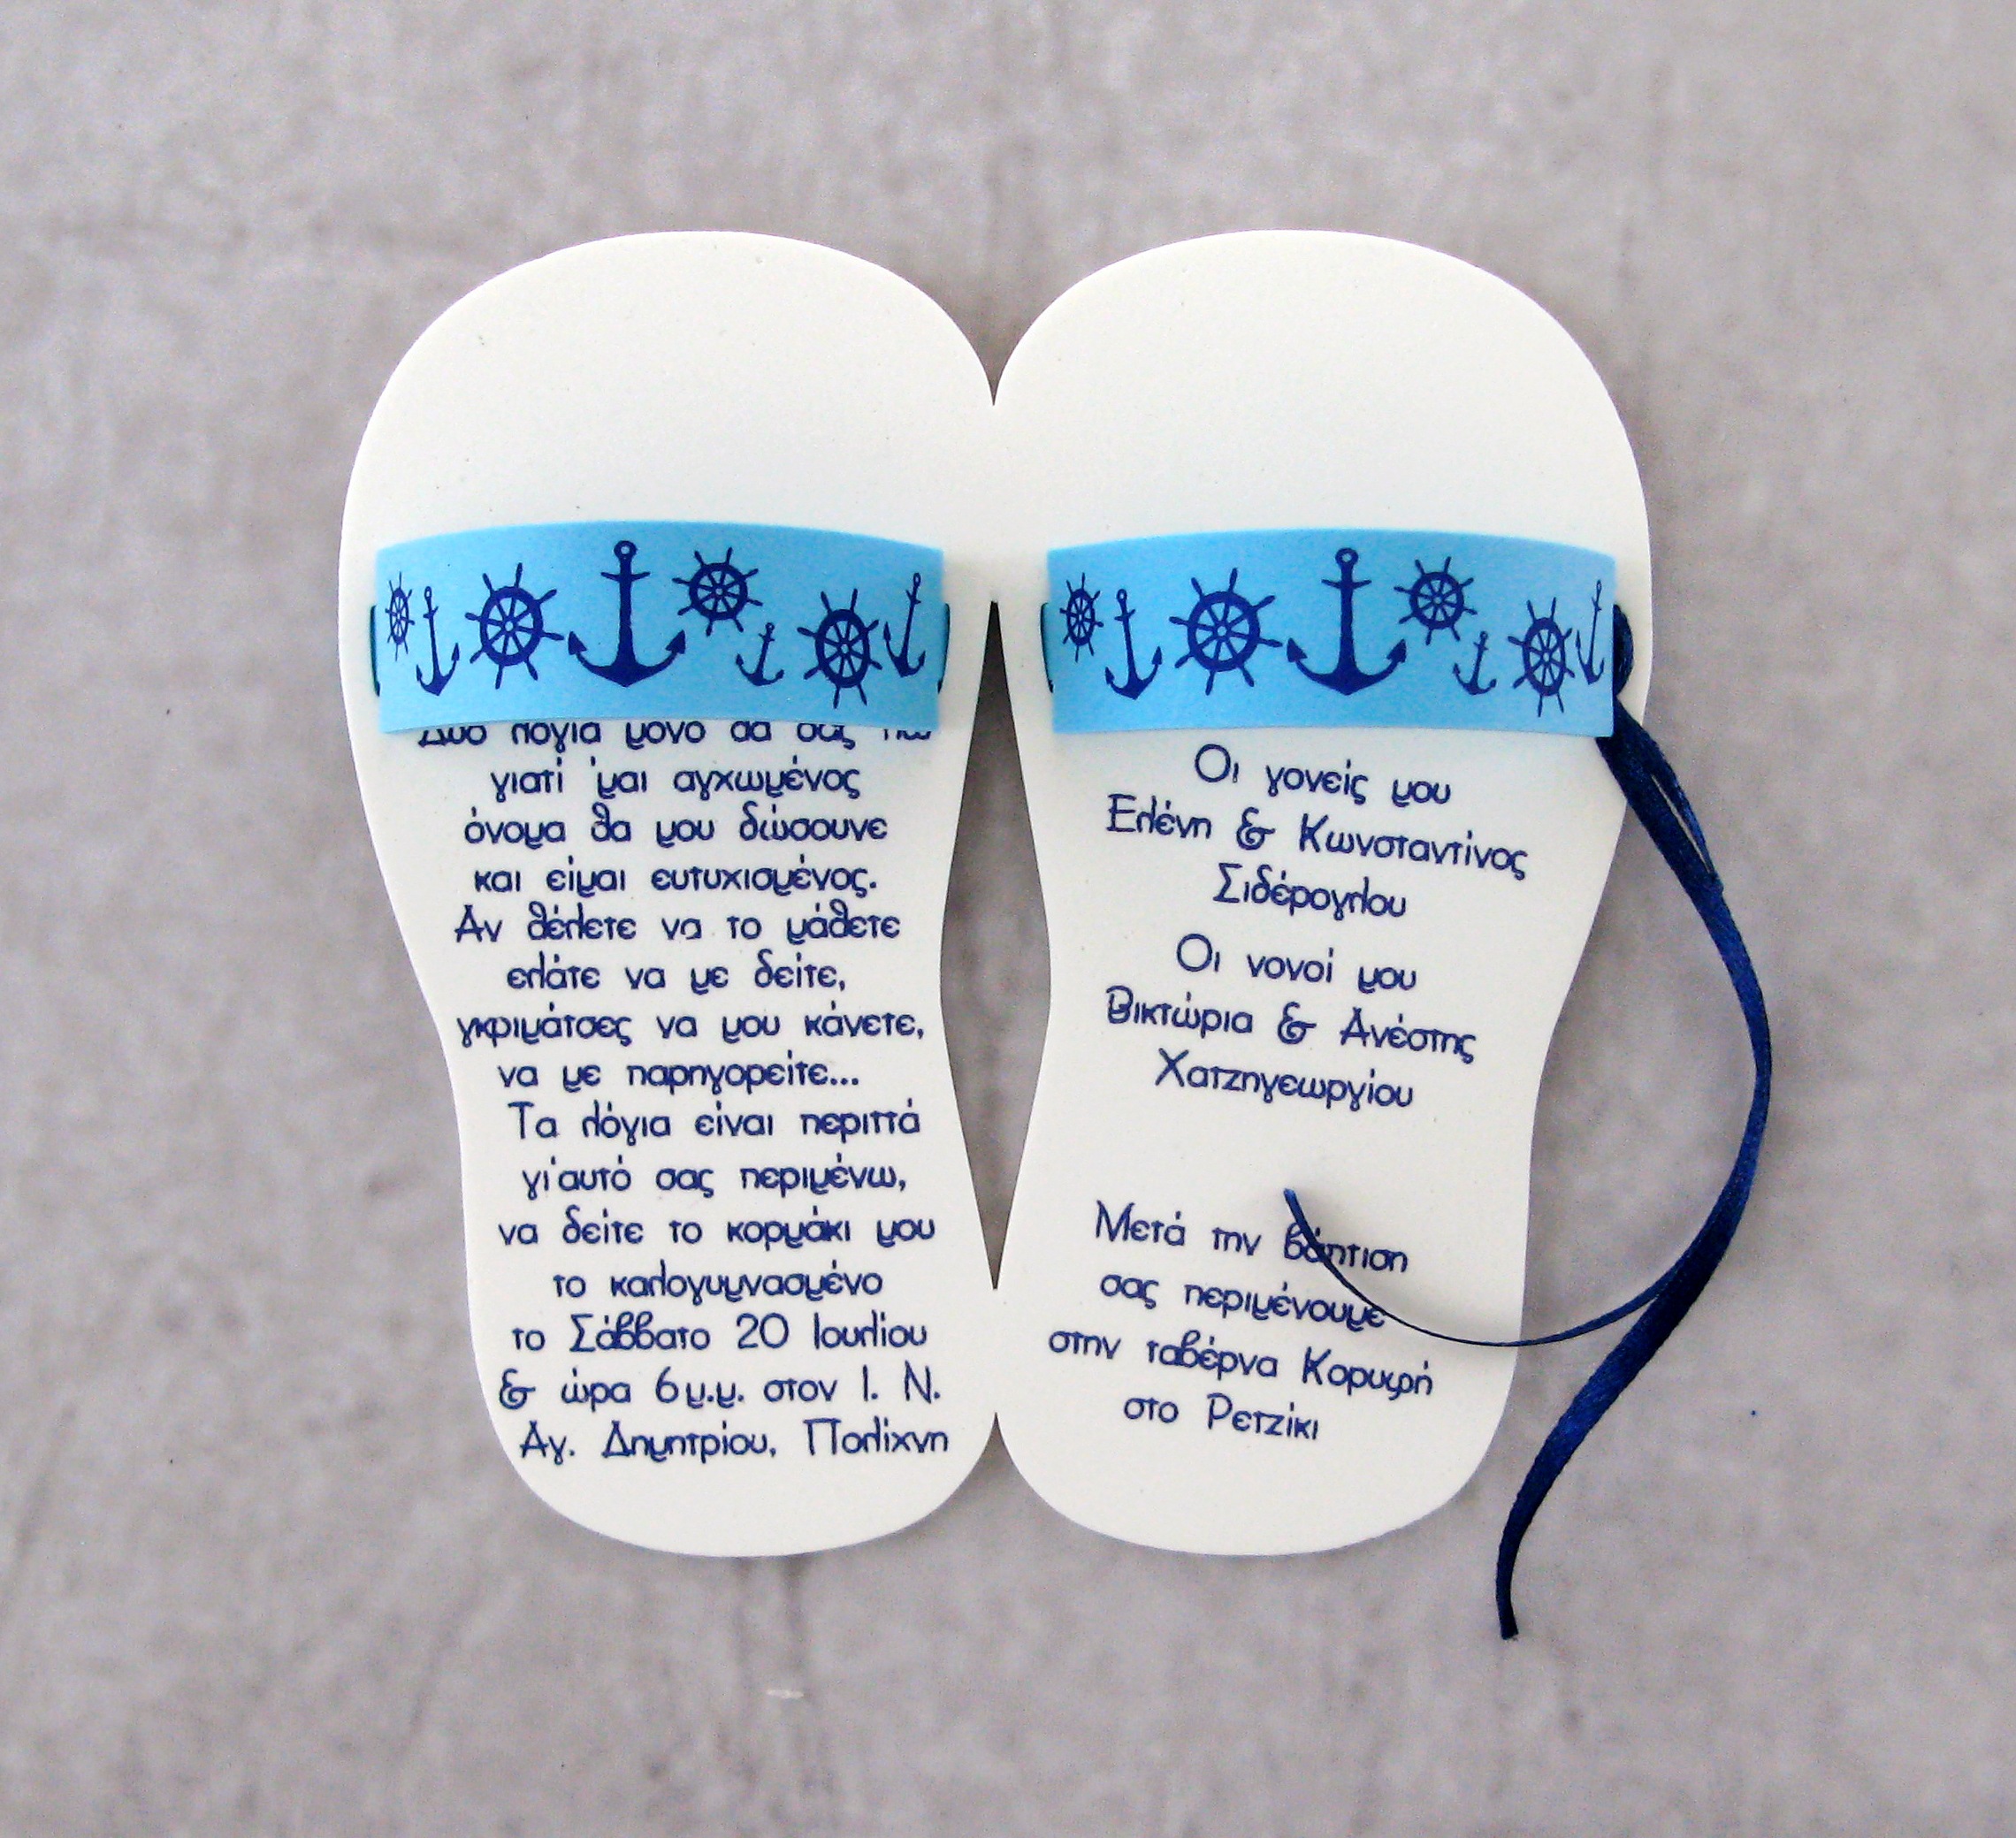 Δυο λόγια μόνο θα σας πω
γιατί 'μαι αγχωμένος
όνομα θα μου δώσουνε
και είμαι ευτυχισμένος.
Αν θέλετε να το μάθετε
ελάτε να με δείτε,
γκριμάτσες να μου κάνετε,
να με παρηγορείτε...
Τα λόγια είναι περιττά
γι'αυτό σας περιμένω,
να δείτε το κορμάκι μου
το καλογυμνασμένο
το Σάββατο 20 Ιουλίου
& ώρα 6μ.μ. στον Ι. Ν.
Αγ. Δημητρίου, Πολίχνη
Οι γονείς μου
Ελένη & Κωνσταντίνος
Σιδέρογλου
Οι νονοί μου
Βικτώρια & Ανέστης
Χατζηγεωργίου
Μετά την βάπτιση
σας περιμένουμε
στην ταβέρνα Κορυφή
στο Ρετζίκι